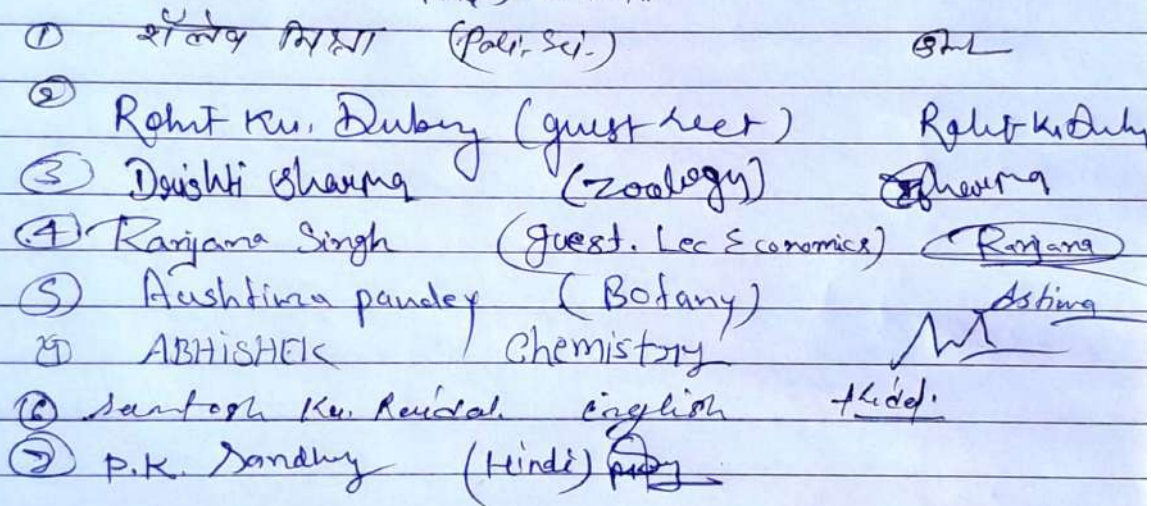 ① शैलेष मिश्रा (Poli. Sci.)
② Rohit Ku. Dubey (guest Lect) Rohit K. Dubey
③ Drishti Sharma (Zoology) Sharma
④ Ranjana Singh (guest. Lec Economics) Ranjana
⑤ Aashtima pandey (Botany) Astima
ABHISHEK Chemistry
⑥ Santosh Ku. english
⑦ P.K. Sandhy (Hindi)